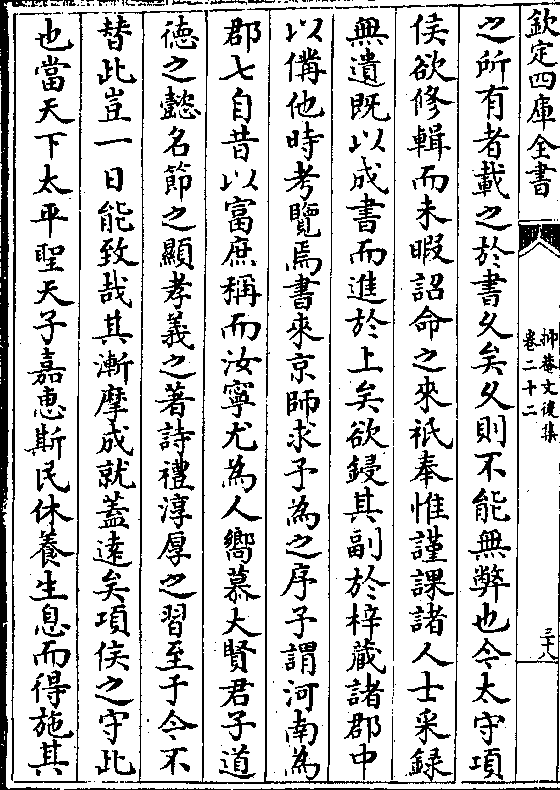 欽定四庫全書
抑菴文後集
卷二十二
三十八
之所有者載之於書久矣久則不能無弊也今太守項
侯欲修輯而未暇詔命之來祇奉惟謹課諸人士采録
無遺既以成書而進於上矣欲鋟其副於梓蔵諸郡中
以備他時考覽焉書來京師求予為之序予謂河南為
郡七自昔以富庶稱而汝寧尤為人嚮慕大賢君子道
徳之懿名節之顯孝義之著詩禮淳厚之習至于今不
替此豈一日能致哉其漸摩成就蓋逺矣項侯之守此
也當天下太平聖天子嘉恵斯民休養生息而得施其